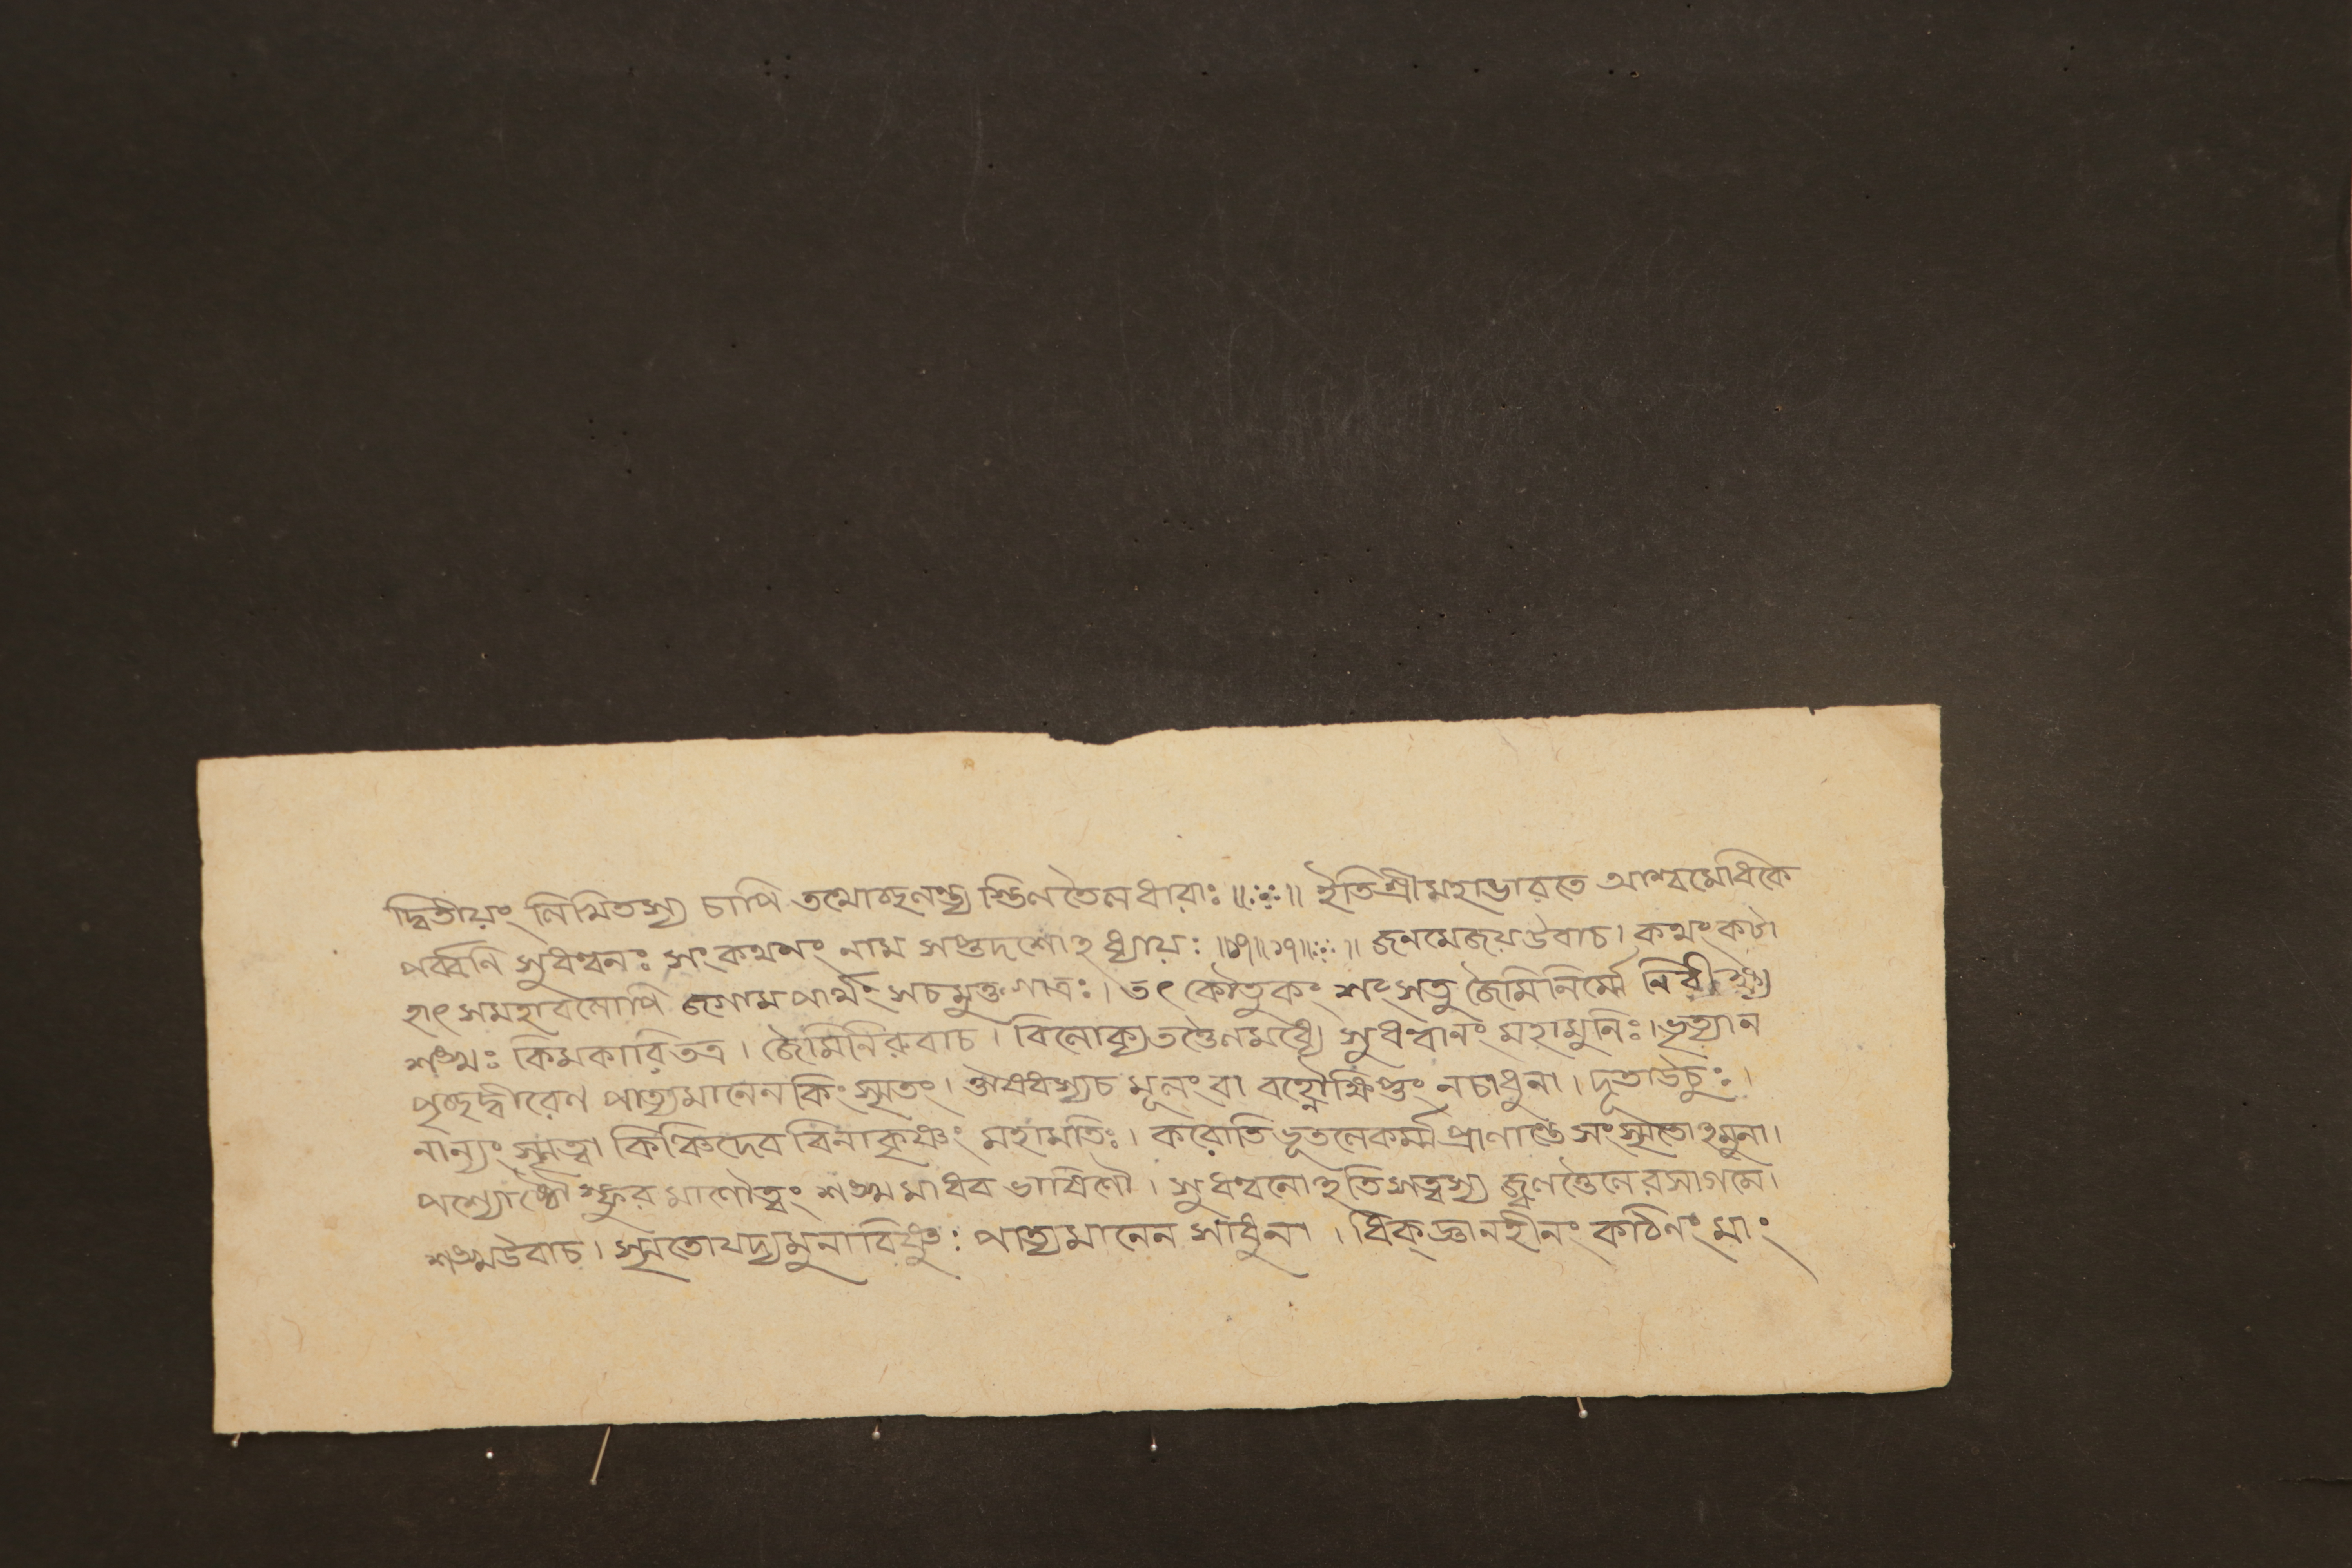 দ্বিতীয়ং নিমিতস্য চাপি তথোচ্ছলন্ত্য স্তিলতৈলধারাঃ ॥ঃ॰ঃ॥ ইতিশ্রীমহাভারতে আশ্বমেধিকে
পর্ব্বনি সুধন্বনঃ সংকথনং নাম সপ্তদশোঽধ্যায়ঃ ॥১৭॥১৭॥ঃ॰ঃ॥ জনমেজয়উবাচ। কথংকটা
হাৎ সমহাবলোপি জগাম পার্থং সচমুক্তগাত্রঃ। তৎ কৌতুকং শংসতু জৈমিনির্ম্মে নিরীক্ষ্য
শঙ্খঃ কিমকারিতত্র। জৈমিনিরুবাচ। বিলোক্যতত্তৈলমধ্যে সুধন্বানং মহামুনিঃ। ভৃত্যান
পৃচ্ছদ্বীরেণ পাত্যমানেন কিংস্মৃতং। ঔষধস্যচ মূলংবা বহ্নৌক্ষিপ্তং নচাধুনা। দূতাউচুঃ।
নান্যং স্মৃত্বা কিঞ্চিদেব বিনাকৃষ্ণং মহামতিঃ। করোতি ভূতলেকর্ম্ম প্রাণান্তে সংস্মৃতোঽমুনা।
পশ্যোষ্ঠৌস্ফুরমাণৌত্বং শঙ্খমাধব ভাষিণৌ। সুধন্বনোঽতিসত্ত্বস্য জ্বলত্তৈলেরসাগমে।
শঙ্খউবাচ। স্মৃতোযদ্যমুনাবিষ্ণুঃ পাত্যমানেন সাধুনা। ধিক্জ্ঞানহীনং কঠিনংমাং